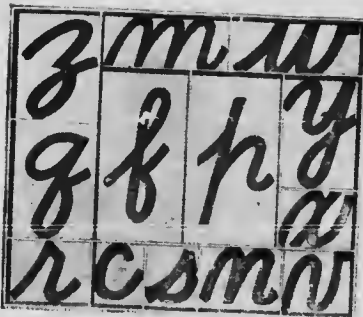 z m w
g f p y
x
r c s n v